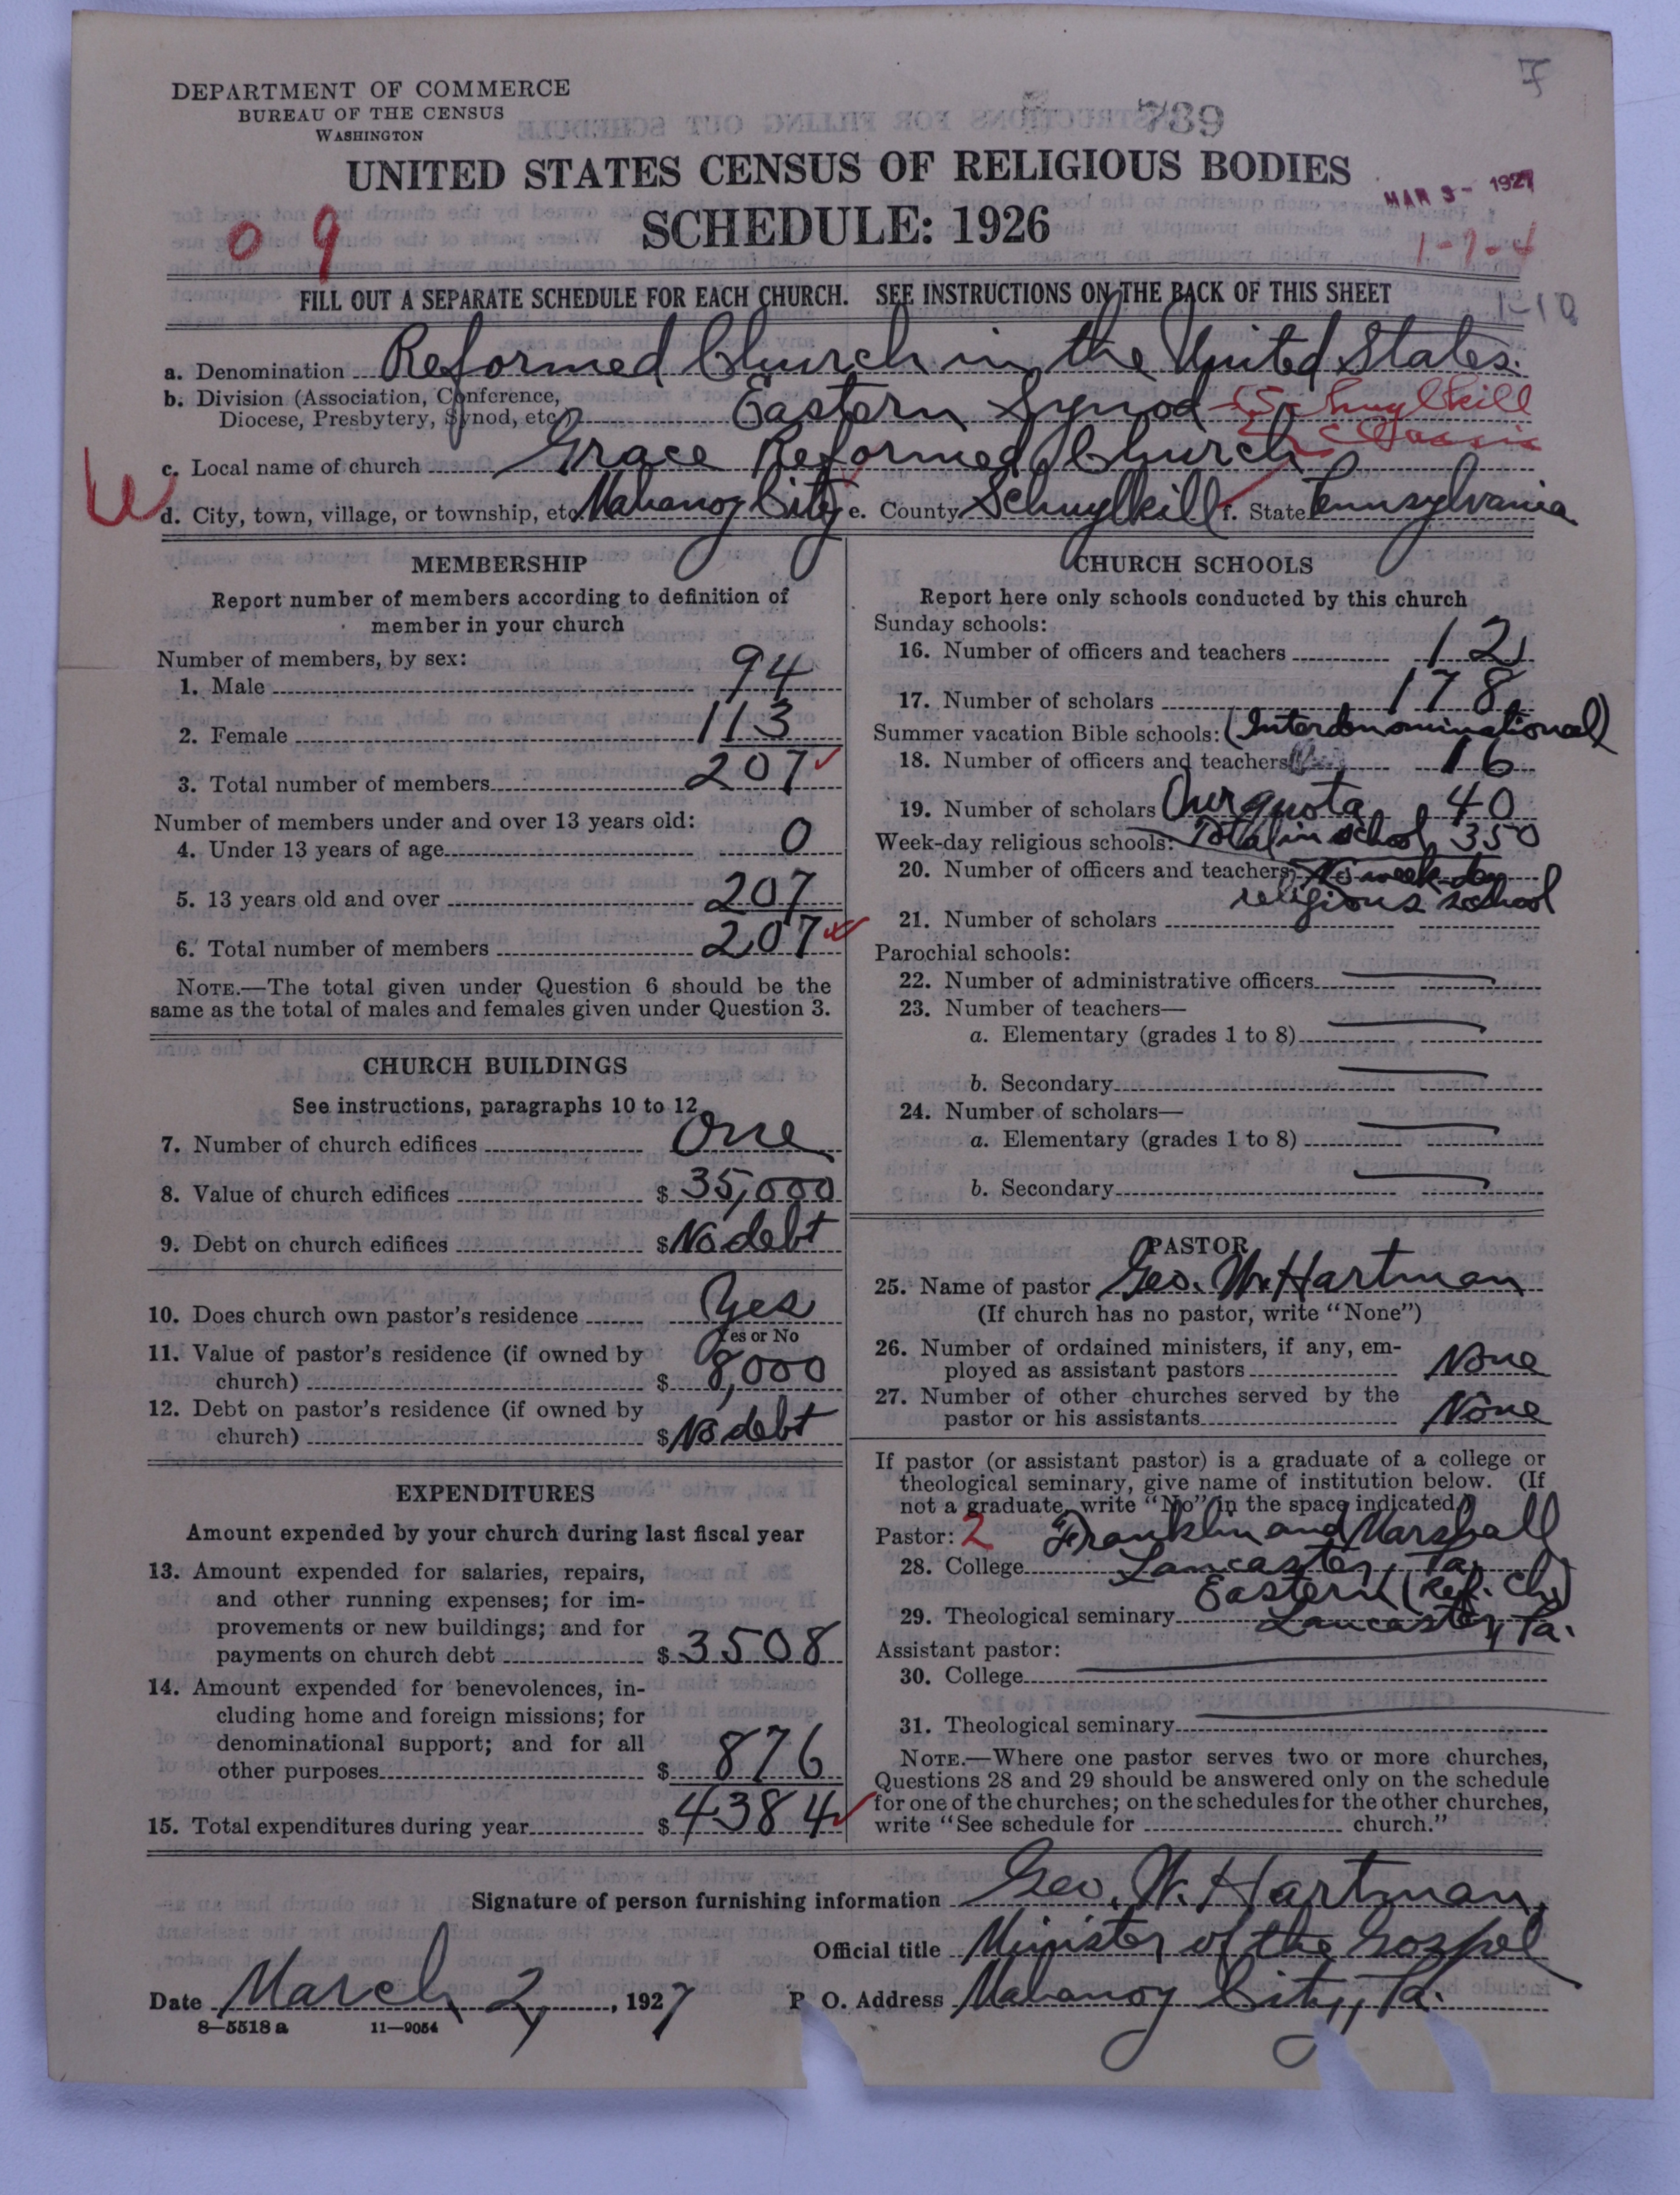 7
DEPARTMENT OF COMMERCE
BUREAU OF THE CENSUS
WASHINGTON
739
UNITED STATES CENSUS OF RELIGIOUS BODIES
MAR 3 - 1927
SCHEDULE: 1926
0 9
1-9-4
1-10
FILL OUT A SEPARATE SCHEDULE FOR EACH CHURCH. SEE INSTRUCTIONS ON THE BACK OF THIS SHEET
a. Denomination Reformed Church in the United States.
b. Division (Association, Conference,
Diocese, Presbytery, Synod, etc.) Eastern Synod Schuylkill
Classis
c. Local name of church Grace Reformed Church
W
d. City, town, village, or township, etc. Mahanoy City e. County Schuylkill f. State Pennsylvania
MEMBERSHIP
Report number of members according to definition of
member in your church
Number of members, by sex:
1. Male 94
2. Female 113
3. Total number of members 207
Number of members under and over 13 years old:
4. Under 13 years of age 0
5. 13 years old and over 207
6. Total number of members 207
NOTE.—The total given under Question 6 should be the
same as the total of males and females given under Question 3.
CHURCH BUILDINGS
See instructions, paragraphs 10 to 12
7. Number of church edifices One
8. Value of church edifices $ 35,000
9. Debt on church edifices $ No debt
10. Does church own pastor's residence Yes
Yes or No
11. Value of pastor's residence (if owned by
church) $ 8,000
12. Debt on pastor's residence (if owned by
church) $ No debt
EXPENDITURES
Amount expended by your church during last fiscal year
13. Amount expended for salaries, repairs,
and other running expenses; for im-
provements or new buildings; and for
payments on church debt $ 3508
14. Amount expended for benevolences, in-
cluding home and foreign missions; for
denominational support; and for all
other purposes $ 876
15. Total expenditures during year $ 4384
CHURCH SCHOOLS
Report here only schools conducted by this church
Sunday schools:
16. Number of officers and teachers 12
17. Number of scholars 178
Summer vacation Bible schools: (Interdenominational)
18. Number of officers and teachers 16
19. Number of scholars Our quota 40
Week-day religious schools: Total in school 350
20. Number of officers and teachers No week-day
religious school
21. Number of scholars
Parochial schools:
22. Number of administrative officers
23. Number of teachers—
a. Elementary (grades 1 to 8)
b. Secondary
24. Number of scholars—
a. Elementary (grades 1 to 8)
b. Secondary
PASTOR
25. Name of pastor Geo. W. Hartman
(If church has no pastor, write "None")
26. Number of ordained ministers, if any, em-
ployed as assistant pastors None
27. Number of other churches served by the
pastor or his assistants None
If pastor (or assistant pastor) is a graduate of a college or
theological seminary, give name of institution below. (If
not a graduate, write "No" in the space indicated.)
Pastor: 2 Franklin and Marshall
28. College Lancaster, Pa.
Eastern (Ref. Ch.)
29. Theological seminary Lancaster, Pa.
Assistant pastor:
30. College
31. Theological seminary
NOTE.—Where one pastor serves two or more churches,
Questions 28 and 29 should be answered only on the schedule
for one of the churches; on the schedules for the other churches,
write "See schedule for church."
Signature of person furnishing information Geo. W. Hartman,
Official title Minister of the Gospel
Date March 2, 1927 P. O. Address Mahanoy City, Pa.
8—5518 a 11—9054